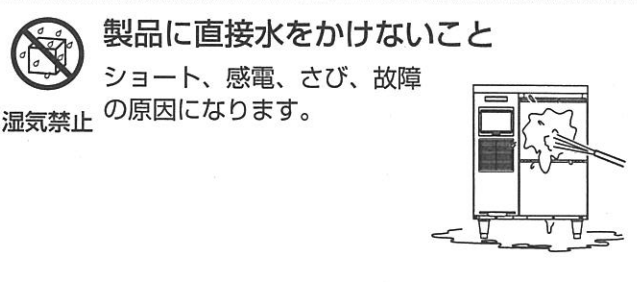 製品に直接水をかけないこと
ショート、感電、さび、故障
の原因になります。
湿気禁止